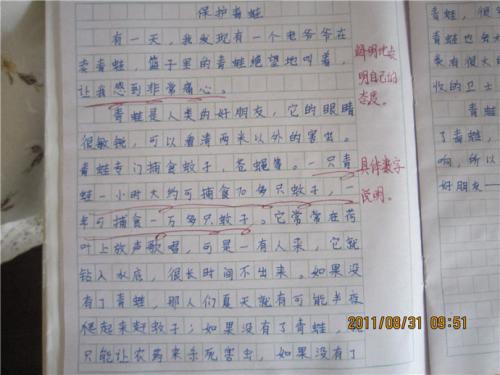 保护青蛙
有一天，我发现有一个老爷爷在
卖青蛙，笼子里的青蛙绝望地叫着，
让我感到非常痛心。
青蛙是人类的好朋友，它的眼睛
很敏锐，可以看清两米以外的害虫。
青蛙专门捕食蚊子，苍蝇等。一只青
蛙一小时大约可捕食70多只蚊子，一
年可捕食一万多只蚊子。它常常在荷
叶上放声歌唱，可是一有人来，它就
钻入水底，很长时间不出来。如果没
有了青蛙，那人们夏天就有可能半夜
爬起来赶蚊子；如果没有了青蛙，就
只能让农药来杀死害虫，如果没有了
鲜明地表
明自己的
态度。
具体数字
说明。
青蛙，很
青蛙也
来有很大的
收的卫士
青蛙
了青蛙，
响，所以
好朋友一
2011/08/31 09:51